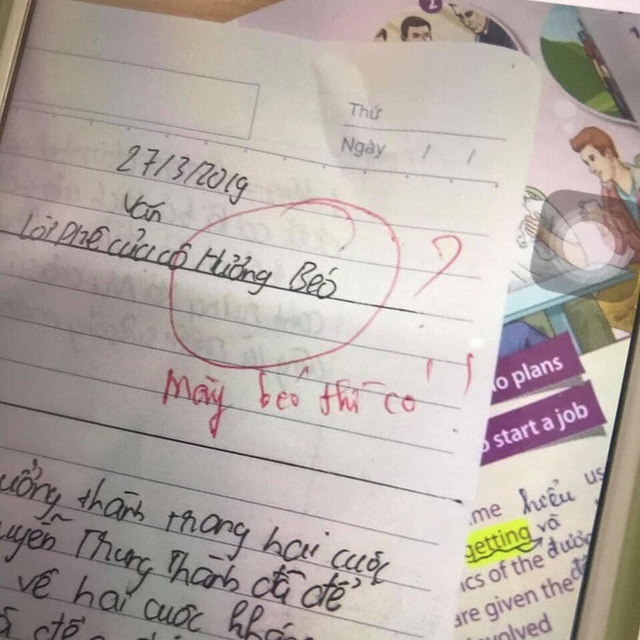 Thứ
Ngày / /
27/3/2019
Văn
Lời phê của cô Hường Béo
?
Mày béo thì có !
o plans
start a job
ưởng thành trong hai cuộc
uyễn Trung Thành đã để
về hai cuộc kháng
me hiểu us
getting và
ics of the được
are given the
volved